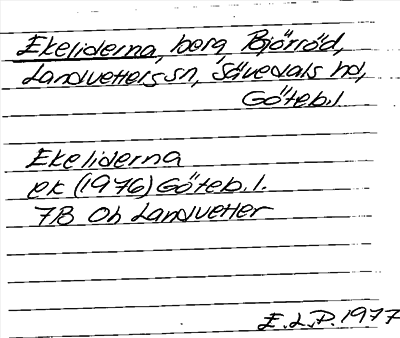 Ekeliderna, berg, Björröd,
Landvetters sn, Sävedals hd,
Göteb.l
Ekeliderna
ek (1976) Göteb.l.
7B Oh Landvetter
E.L.P. 1977